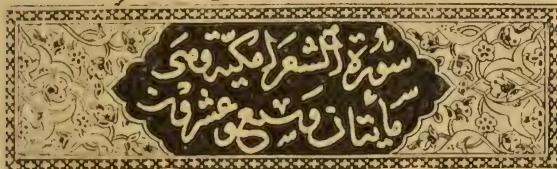 سورة الشعرا مكية وهى
مائتان وسبع وعشرون